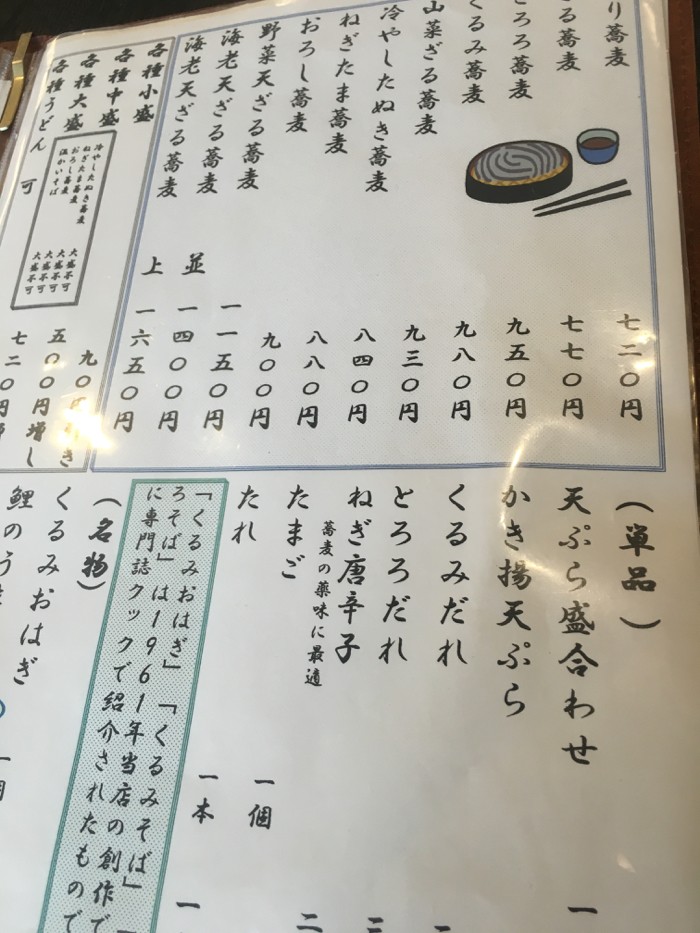 り蕎麦
七二〇円
る蕎麦
七七〇円
とろろ蕎麦
九五〇円
くるみ蕎麦
九八〇円
山菜ざる蕎麦
九三〇円
冷やしたぬき蕎麦
八四〇円
ねぎたま蕎麦
八八〇円
おろし蕎麦
九〇〇円
野菜天ざる蕎麦
一一五〇円
海老天ざる蕎麦
並 一四〇〇円
海老天ざる蕎麦
上 一六五〇円
各種小盛
九〇円引き
各種中盛
各種大盛
五〇〇円増し
各種うどん 可
七二〇円増
冷やしたぬき蕎麦 大盛不可
ねぎたま蕎麦 大盛不可
おろし蕎麦 大盛不可
温かいそば 大盛不可
(単品)
天ぷら盛合わせ
一
かき揚天ぷら
くるみだれ
とろろだれ
ねぎ唐辛子
蕎麦の薬味に最適
たまご
一個
たれ
一本
一
「くるみおはぎ」「くるみそば」「
ろそば」は1961年当店の創作で
に専門誌クックで紹介されたもので
(名物)
くるみおはぎ
鯉のう